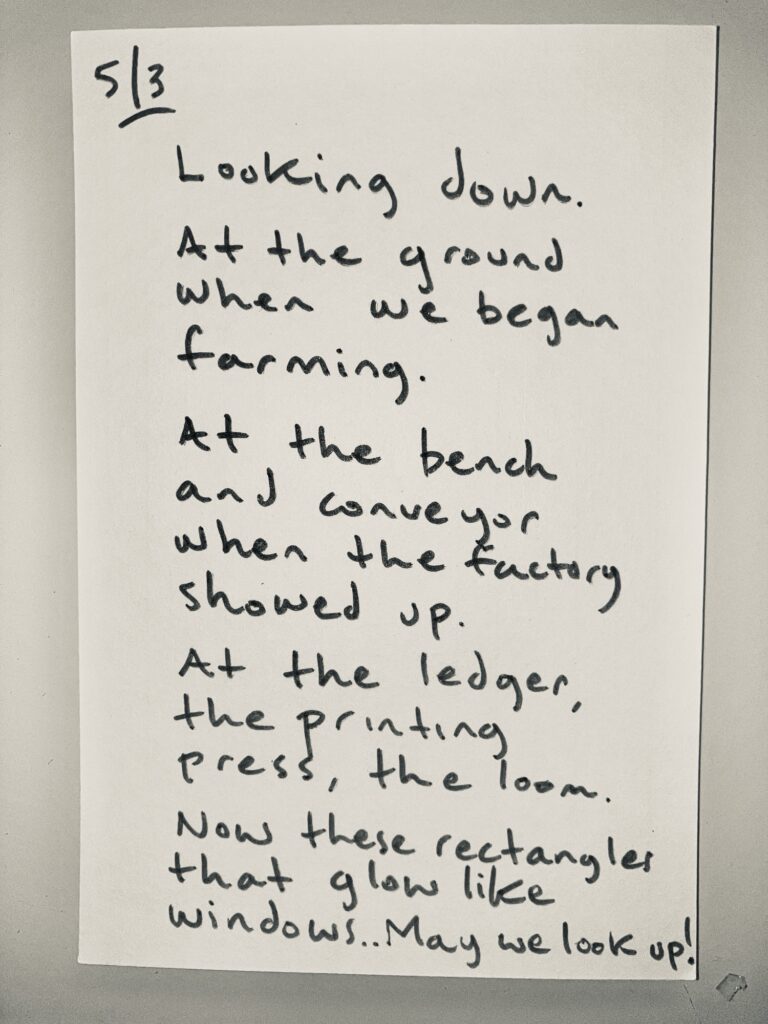 5/3
Looking down.
At the ground
when we began
farming.
At the bench
and conveyor
when the factory
showed up.
At the ledger,
the printing
press, the loom.
Now these rectangles
that glow like
windows..May we look up!